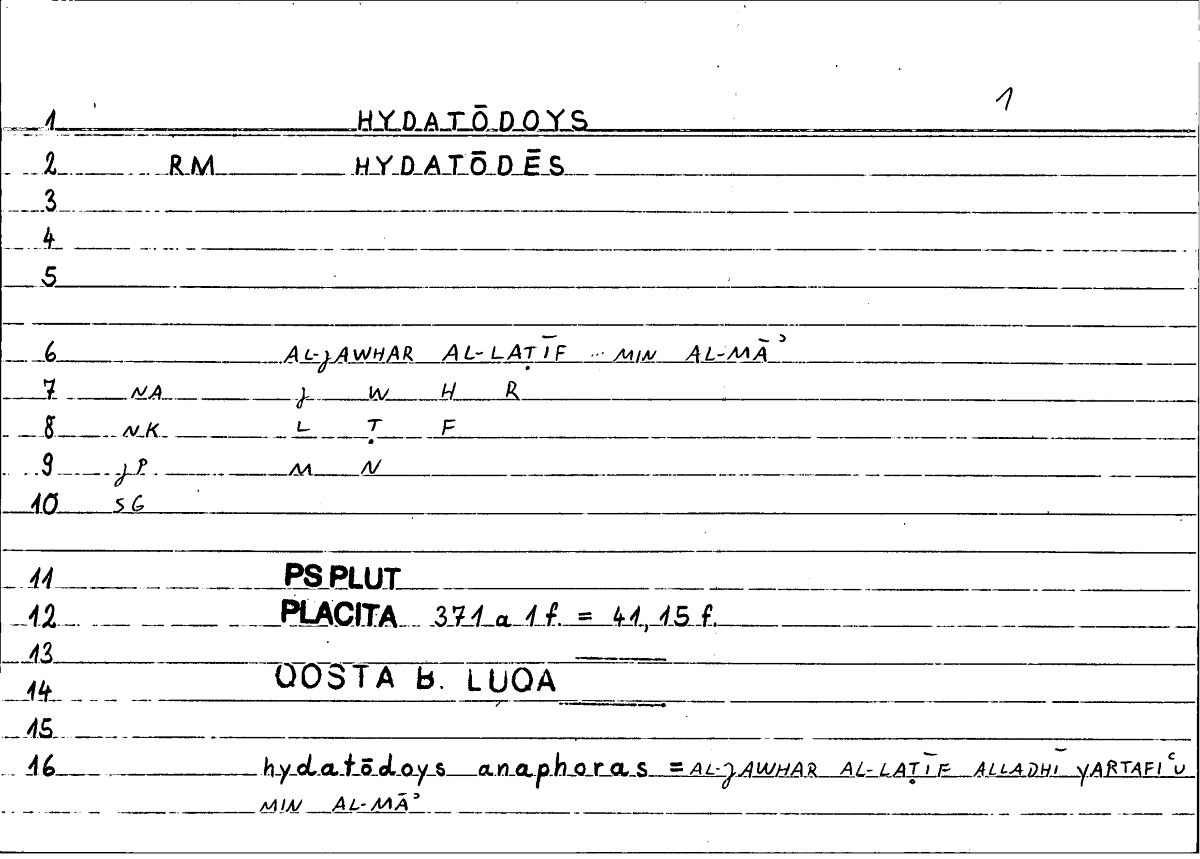 1
1 HYDATŌDOYS
2 RM HYDATŌDĒS
3
4
5
6 AL-JAWHAR AL-LAṬĪF ... MIN AL-MĀʾ
7 NA J W H R
8 NK L Ṭ F
9 JP M N
10 SG
11 PS PLUT
12 PLACITA 371 a 1 f. = 41, 15 f.
13
14 QOSTA B. LUQA
15
16 hydatōdoys anaphoras = AL-JAWHAR AL-LAṬĪF ALLADHĪ YARTAFIʿU
MIN AL-MĀʾ